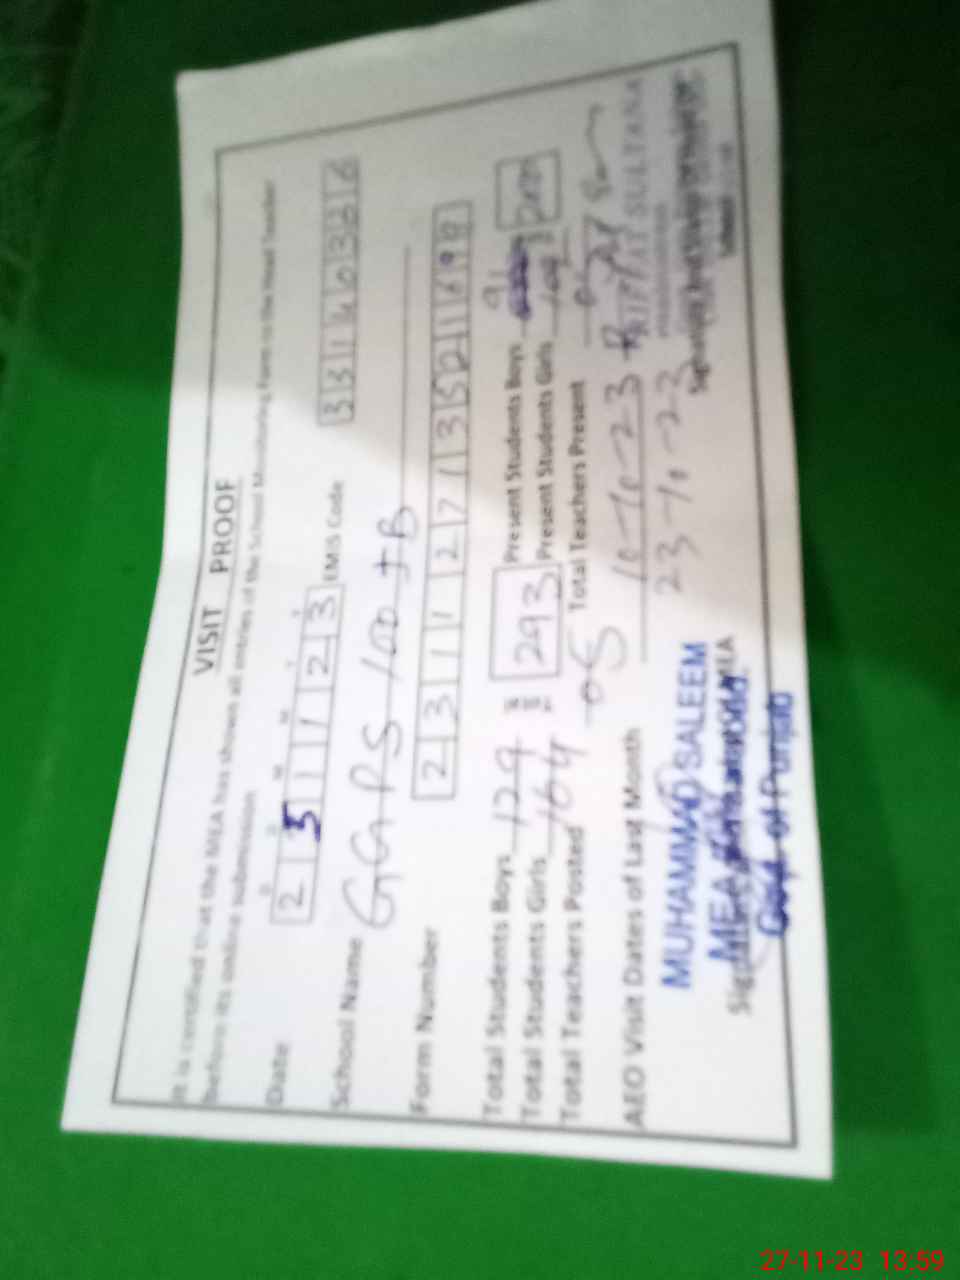 VISIT PROOF
It is certified that the MEA has shown all entries of the School Monitoring Form to the Head Teacher
before its online submission
D D M M Y Y
Date 2 5 1 1 2 3 EMIS Code 3 3 1 4 0 3 3 6
School Name GGPS 100 JB
Form Number 2 3 1 1 2 7 1 3 5 0 1 6 9 8
Total Students Boys 129 Present Students Boys 91
Total Students Girls 164 293 Present Students Girls 109
Total Teachers Posted 05 Total Teachers Present
AEO Visit Dates of Last Month 10-10-23
23-10-23
MUHAMMAD SALEEM SULTANA
MEA
Govt. of Punjab
27-11-23 13:59